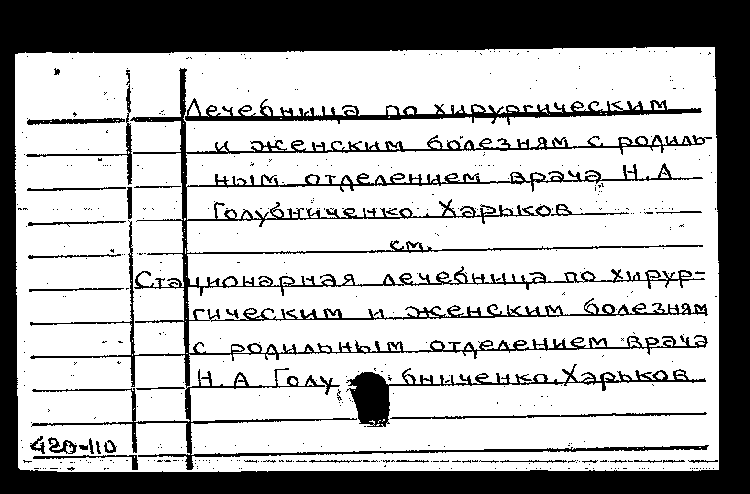 Лечебница по хирургическим
и женским болезням с родиль-
ным отделением врача Н.А
Голубниченко. Харьков
см.
Стационарная лечебница по хирур-
гическим и женским болезням
с родильным отделением врача
Н.А. Голубниченко. Харьков
420-110